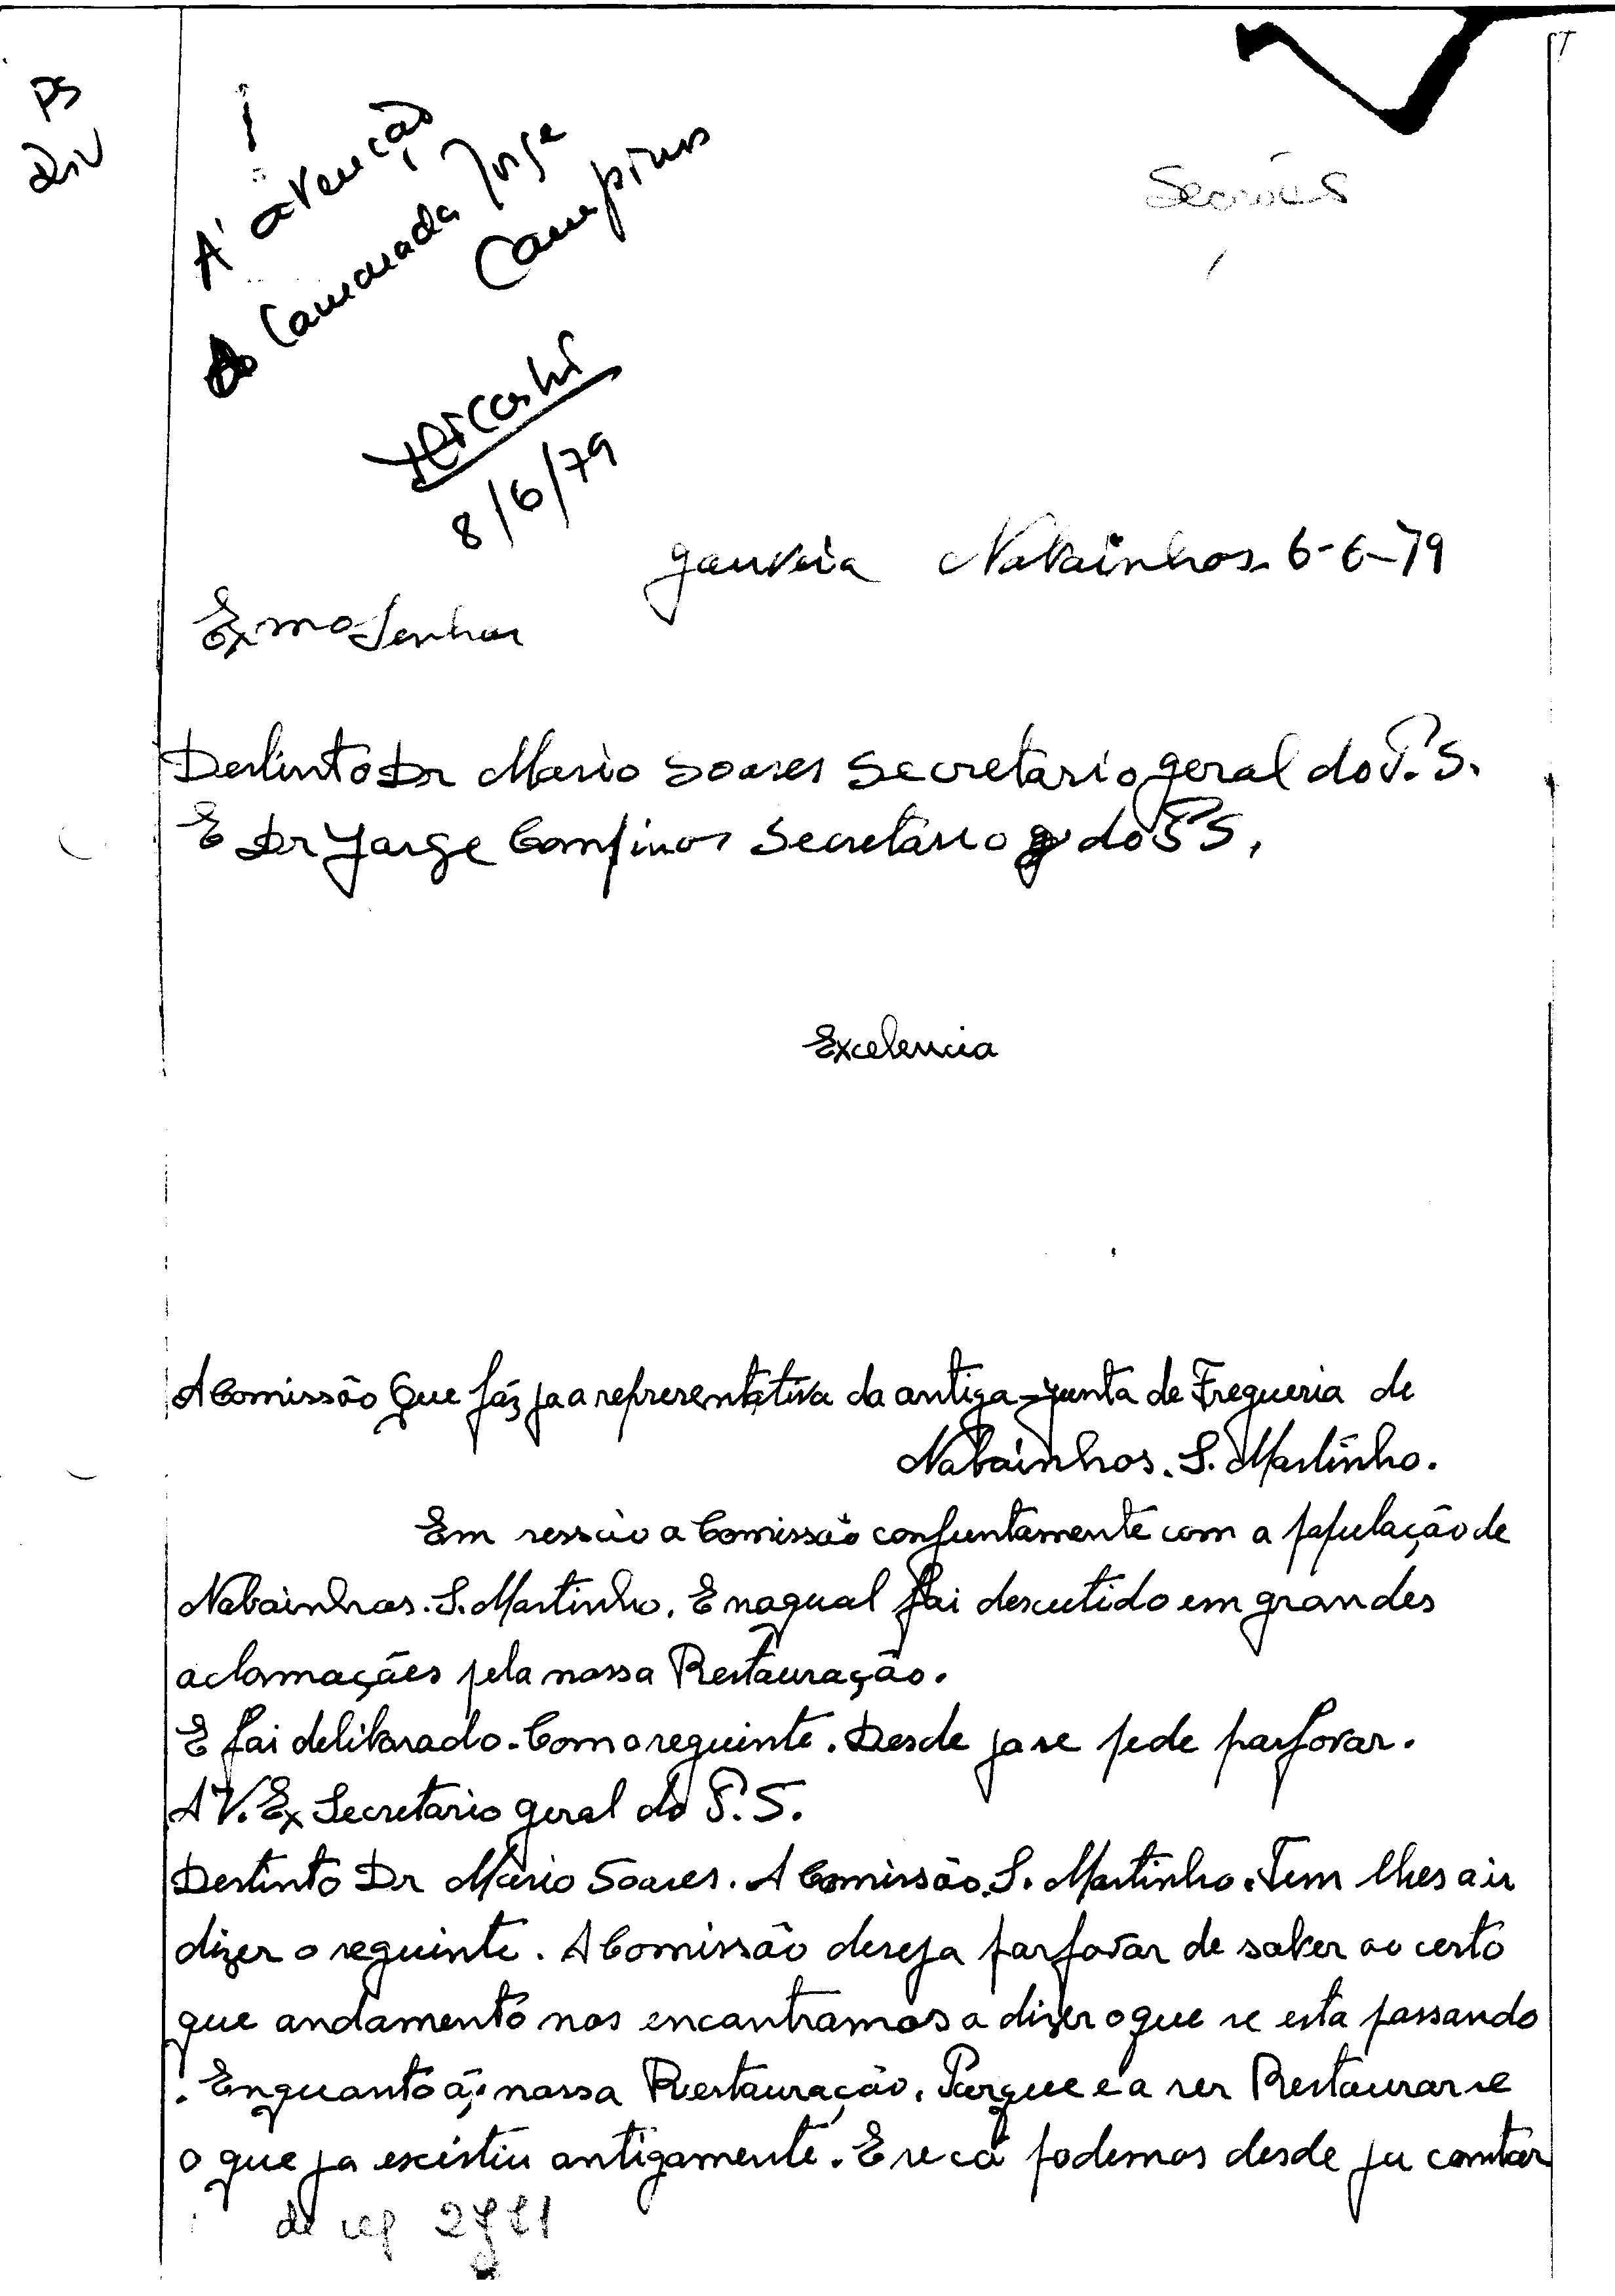 PS
Div
À atenção
do Camarada Jorge
Campinos
8/6/79
Secções
Gouveia Nabainhos 6-6-79
Exmo Senhor
Destinto Dr Mario Soares Secretario geral do P.S.
E Dr Jorge Campinos Secretário do PS,
Excelencia
A Comissão Que fáz ja a representativa da antiga-junta de Fregueria de
Nabainhos. S. Martinho.
Em sessão a Comissão conjuntamente com a população de
Nabainhos. S. Martinho. E na qual foi descutido em grandes
aclamações pela nossa Restauração.
E foi deliberado. Com o seguinte. Desde ja se pede por favor.
A V. Ex Secretario geral do P.S.
Destinto Dr Mário Soares. A Comissão S. Martinho. Tem lhes a ir
dizer o seguinte. A Comissão deseja por favor de saber ao certo
que andamento nos encontramos a dizer o que se esta passando
. Enquanto á nossa Restauração. Porque é a ser Restaurar se
o que ja excistiu antigamente. E se cá podemos desde ja contar